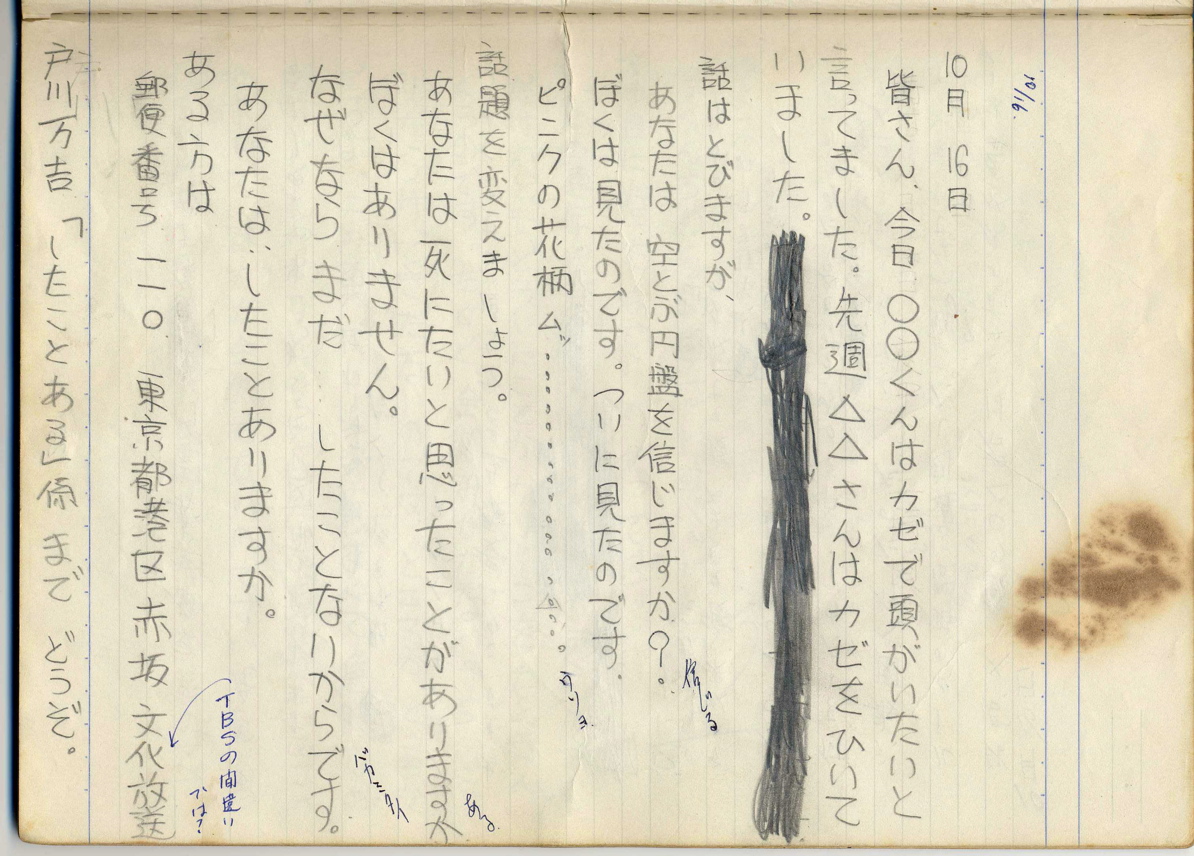 10/16.
10月16日
皆さん、今日〇〇くんはカゼで頭がいたいと
言ってました。先週△△さんはカゼをひいて
いました。
話はとびますが、
あなたは空とぶ円盤を信じますか?。
信じる
ぼくは見たのです。ついに見たのです。
ピンクの花柄ム゛
話題を変えましょう。
あなたは死にたいと思ったことがありますか
ある。
ぼくはありません。
なぜならまだ……したことないからです。
あなたは…したことありますか。
ある方は
郵便番号一一〇 東京都港区赤坂 文化放送
TBSの間違い
では?
戸川万吉「したことある」係まで どうぞ。